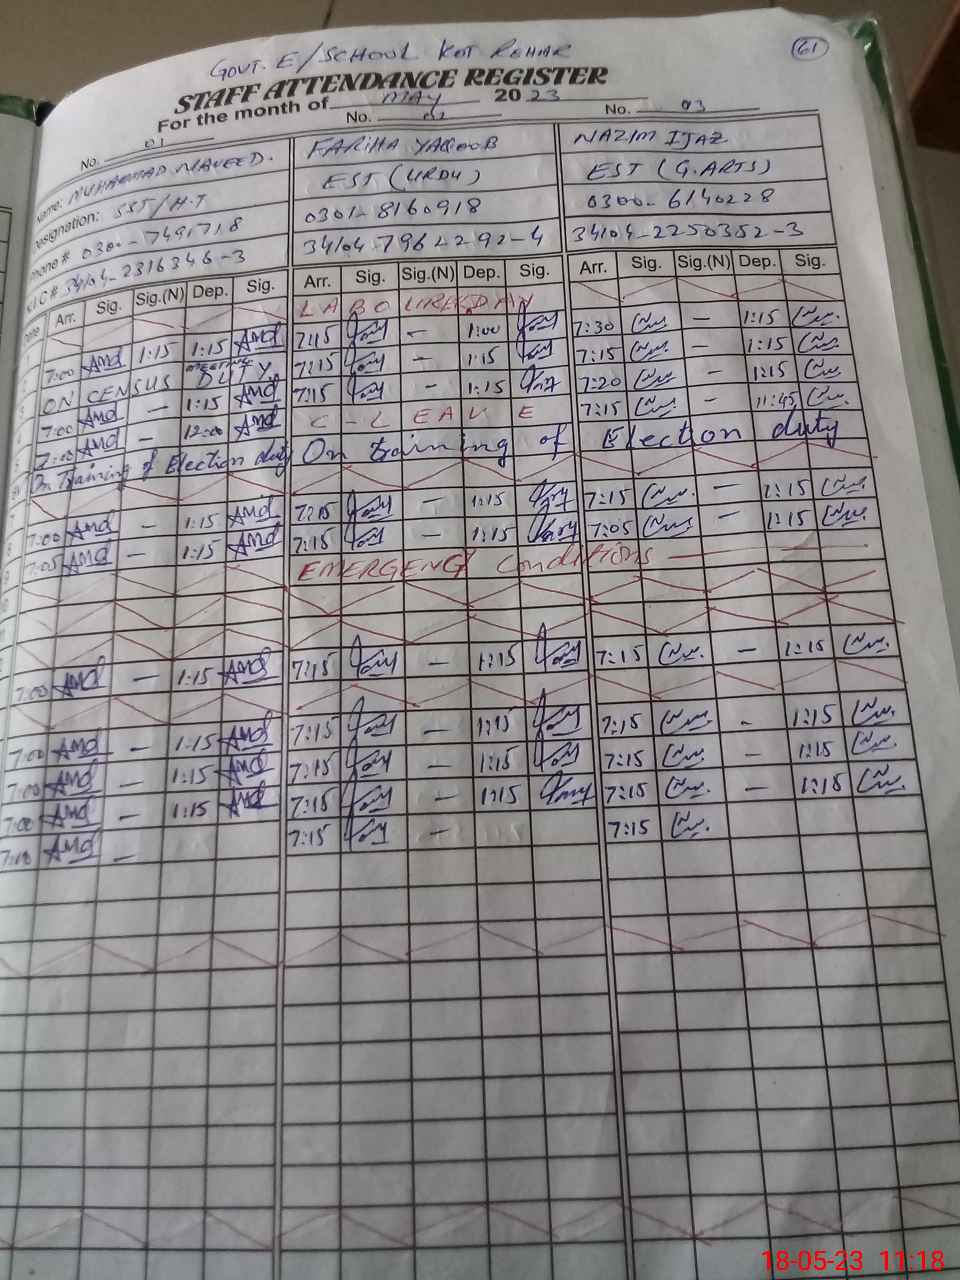 61
GOVT. E/SCHOOL KOT REHAR
STAFF ATTENDANCE REGISTER
For the month of MAY 2023
No. 01 No. 02 No. 03
Name: MUHAMMAD NAVEED. FARIHA YAQOOB NAZIM IJAZ
Designation: SST/H.T EST (URDU) EST (G.ARTS)
Phone # 0300-7491718 0301-8160918 0300-6140228
N.I.C # 34104-2316346-3 34104-7962292-4 34104-2250352-3
Date Arr. Sig. Sig.(N) Dep. Sig. Arr. Sig. Sig.(N) Dep. Sig. Arr. Sig. Sig.(N) Dep. Sig.
1 LABOUR DAY
2 7:00 Amd 1:15 1:15 Amd 7:15 - 1:00 7:30 - 1:15
3 ON CENSUS MEETING DUTY 7:15 - 1:15 7:15 - 1:15
4 7:00 Amd - 1:15 Amd 7:15 - 1:15 7:20 - 1:15
5 7:00 Amd - 12:00 Amd C-LEAVE 7:15 - 11:45
On Training of Election duty On training of Election duty
7
8 7:00 Amd - 1:15 Amd 7:15 - 1:15 7:15 - 1:15
9 7:05 Amd - 1:15 Amd 7:15 - 1:15 7:05 - 1:15
EMERGENCY Conditions
7:00 Amd - 1:15 Amd 7:15 - 1:15 7:15 - 1:15
7:00 Amd - 1:15 Amd 7:15 - 1:15 7:15 - 1:15
7:00 Amd - 1:15 Amd 7:15 - 1:15 7:15 - 1:15
7:00 Amd - 1:15 Amd 7:15 - 1:15 7:15 - 1:15
7:00 Amd - 7:15 - 7:15
18-05-23 11:18